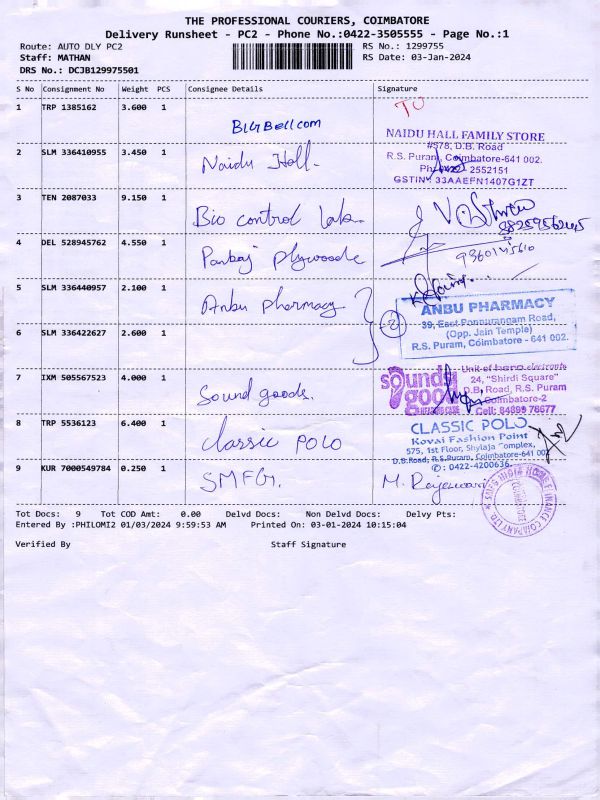 THE PROFESSIONAL COURIERS, COIMBATORE
Delivery Runsheet - PC2 - Phone No.:0422-3505555 - Page No.:1
Route: AUTO DLY PC2
RS No.: 1299755
Staff: MATHAN
RS Date: 03-Jan-2024
DRS No.: DCJB129975501
S No Consignment No Weight PCS Consignee Details Signature
1 TRP 1385162 3.600 1
TU
BIGBell.com
NAIDU HALL FAMILY STORE
#578, D.B. Road
2 SLM 336410955 3.450 1 Naidu Hall.
R.S. Puram, Coimbatore-641 002.
2552151
GSTIN: 33AAEFN1407G1ZT
3 TEN 2087033 9.150 1
Bio control Lab.
4 DEL 528945762 4.550 1
Pankaj Plywoode
9360145610
5 SLM 336440957 2.100 1 Anbu Pharmacy
2
ANBU PHARMACY
39, East Ponnurangam Road,
(Opp. Jain Temple)
R.S. Puram, Coimbatore - 641 002.
6 SLM 336422627 2.600 1
7 IXM 505567523 4.000 1
Sound goods.
sound good
HEARING CARE
24, "Shirdi Square"
D.B. Road, R.S. Puram
Coimbatore-2
Cell: 84899 78677
8 TRP 5536123 6.400 1
Classic POLO
CLASSIC POLO
Kovai Fashion Point
575, 1st Floor, Shylaja Complex,
D.B.Road, R.S.Puram, Coimbatore-641 002
✆: 0422-4200636
9 KUR 7000549784 0.250 1
SMFG.
M. Rajeswari
SMFG INDIA HOME FINANCE COMPANY LTD.
Tot Docs: 9 Tot COD Amt: 0.00 Delvd Docs: Non Delvd Docs: Delvy Pts:
Entered By :PHILOMI2 01/03/2024 9:59:53 AM Printed On: 03-01-2024 10:15:04
Verified By Staff Signature